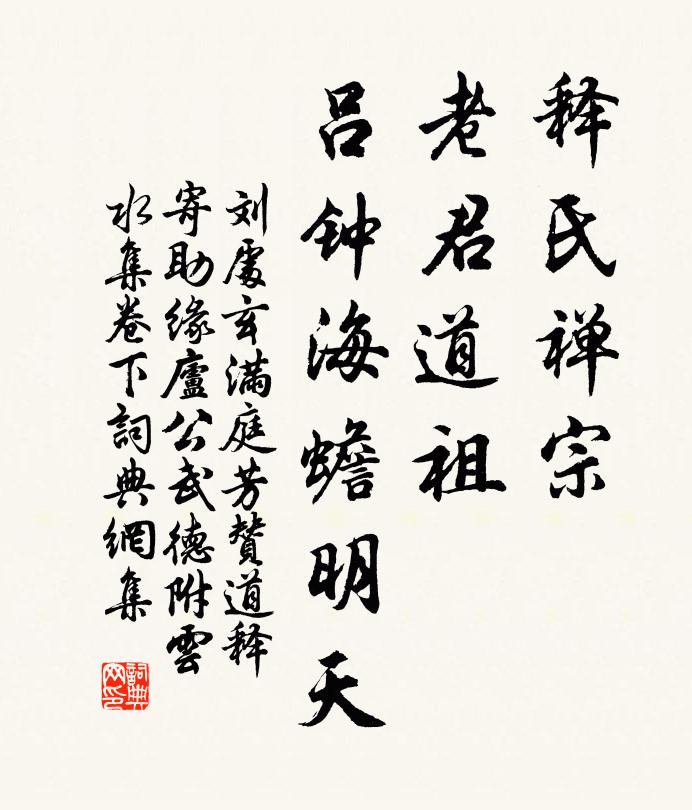 释氏禅宗
老君道祖
吕钟海蟾明天
刘處玄满庭芳赞道释
寄助缘廬公武德附雲
水集卷下詞典網集
詞典網印